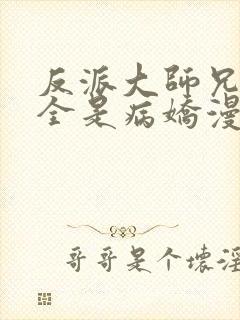 反派大師兄
全是病嬌漫
哥哥是个壞淫